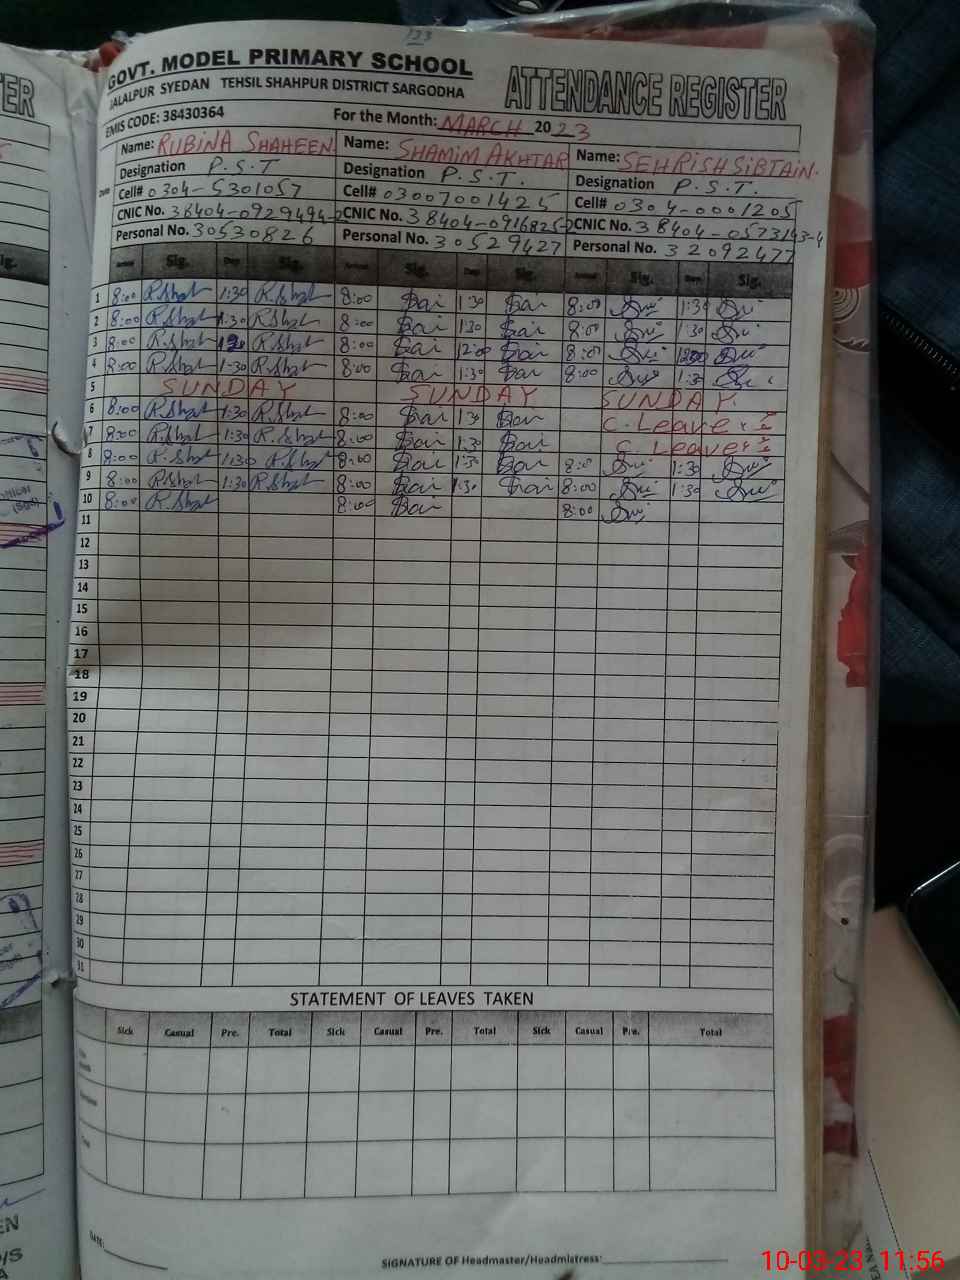 123
GOVT. MODEL PRIMARY SCHOOL
JALALPUR SYEDAN TEHSIL SHAHPUR DISTRICT SARGODHA
ATTENDANCE REGISTER
EMIS CODE: 38430364 For the Month: MARCH 2023
Name: RUBINA SHAHEEN Name: SHAMIM AKHTAR Name: SEHRISH SIBTAIN.
Designation P.S.T Designation P.S.T. Designation P.S.T.
Cell# 0304-5301057 Cell# 03007001425 Cell# 0304-0001205
CNIC No. 38404-0929494-2 CNIC No. 38404-0916825-2 CNIC No. 38404-0573143-4
Personal No. 30530826 Personal No. 30529427 Personal No. 32092477
Date Arrival Sig. Dep Sig. Arrival Sig. Dep Sig. Arrival Sig. Dep Sig.
1 8:00 R.Shah 1:30 R.Shah 8:00 1:30 8:00 1:30
2 8:00 R.Shah 1:30 R.Shah 8:00 1:30 8:00 1:30
3 8:00 R.Shah R.Shah 8:00 12:00 8:00 1200
4 8:00 R.Shah 1:30 R.Shah 8:00 1:30 8:00 1:30
5 SUNDAY SUNDAY SUNDAY.
6 8:00 R.Shah 1:30 R.Shah 8:00 1:30 C. Leave
7 8:00 R.Shah 1:30 R.Shah 8:00 1:30 C. Leave
8 8:00 R.Shah 1:30 R.Shah 8:00 1:30 8:00 1:30
9 8:00 R.Shah 1:30 R.Shah 8:00 1:30 8:00 1:30
10 8:00 R.Shah 8:00 8:00
11
12
13
14
15
16
17
18
19
20
21
22
23
24
25
26
27
28
29
30
31
STATEMENT OF LEAVES TAKEN
Sick Casual Pre. Total Sick Casual Pre. Total Sick Casual Pre. Total
DATE:
SIGNATURE OF Headmaster/Headmistress:
10-03-23 11:56